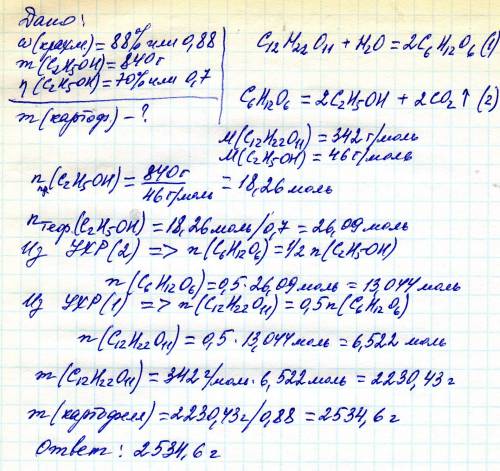 Дано:
ω(крахм.)=88% или 0,88
m(C2H5OH)=840г
η(C2H5OH)=70% или 0,7
m(картоф)-?
C12H22O11 + H2O = 2C6H12O6 (1)
C6H12O6 = 2C2H5OH + 2CO2↑ (2)
M(C12H22O11)=342 г/моль
M(C2H5OH)=46 г/моль
nпр(C2H5OH) = 840г / 46 г/моль = 18,26 моль
nтеор(C2H5OH)=18,26 моль/0,7 = 26,09 моль
Из УХР(2) => n(C6H12O6)=1/2 n(C2H5OH)
n(C6H12O6)=0,5·26,09 моль = 13,044 моль
Из УХР(1) => n(C12H22O11)=0,5n(C6H12O6)
n(C12H22O11)=0,5·13,044 моль = 6,522 моль
m(C12H22O11)=342 г/моль·6,522 моль = 2230,43 г
m(картофеля)=2230,43г/0,88 = 2534,6 г
Ответ: 2534,6 г